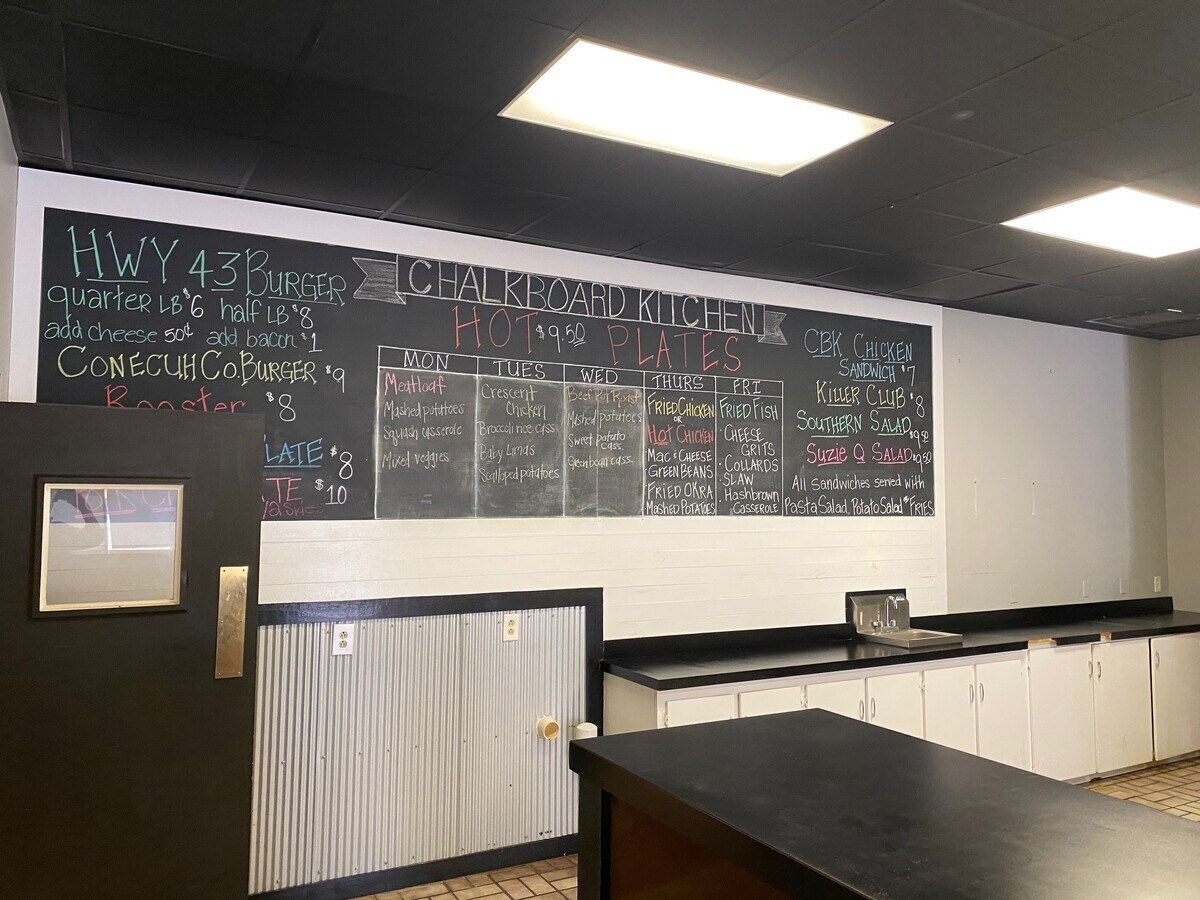 HWY 43 BURGER
quarter LB $6 half LB $8
add cheese 50¢ add bacon $1
CONECUH CO. BURGER $9
Rooster $8
LATE $8
TE $10
CHALKBOARD KITCHEN
HOT $9.50 PLATES
MON
Meatloaf
Mashed potatoes
Squash casserole
Mixed veggies
TUES
Crescent
Chicken
Broccoli rice cass.
Baby Limas
Scalloped potatoes
WED
Beef Pot Roast
Mashed potatoes
Sweet potato
cass.
Green bean cass.
THURS
FRIED CHICKEN
OR
HOT CHICKEN
MAC & CHEESE
GREEN BEANS
FRIED OKRA
MASHED POTATOES
FRI
FRIED FISH
CHEESE
GRITS
COLLARDS
SLAW
Hashbrown
CASSEROLE
CBK CHICKEN
SANDWICH $7
KILLER CLUB $8
SOUTHERN SALAD $9.50
SUZIE Q SALAD $9.50
All sandwiches served with
Pasta Salad, Potato Salad * FRIES